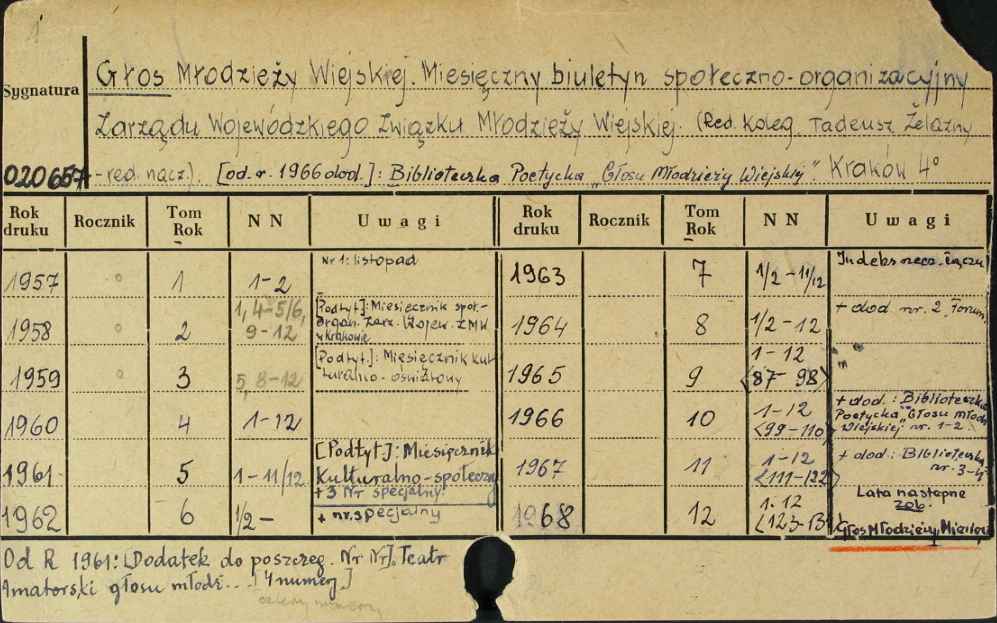 1
Głos Młodzieży Wiejskiej. Miesięczny biuletyn społeczno-organizacyjny
Sygnatura
Zarządu Wojewódzkiego Związku Młodzieży Wiejskiej. (Red. Koleg. Tadeusz Żelazny
020657 - red. nacz.). [od. r. 1966 dod.]: Biblioteczka Poetycka „Głosu Młodzieży Wiejskiej". Kraków 4°
Rok druku Rocznik Tom Rok NN Uwagi Rok druku Rocznik Tom Rok NN Uwagi
1957 1 1-2 Nr 1: listopad
1958 2 1, 4-5/6, 9-12 [Podtyt]: Miesięcznik społ.-organ. Zarz. Wojew. ZMW w Krakowie
1959 3 5, 8-12 [Podtyt.]: Miesięcznik kulturalno-oświatowy
1960 4 1-12
1961 5 1-11/12 [Podtyt]: Miesięcznik Kulturalno-społeczny + 3 Nr specjalny
1962 6 1/2- + nr. specjalny
1963 7 1/2-11/12 Indeks rzecz.
1964 8 1/2-12 + dod. nr. 2 „Forum"
1965 9 1-12 <87-98> „ "
1966 10 1-12 <99-110> + dod.: Biblioteczka Poetycka „Głosu młodz Wiejskiej" nr. 1-2
1967 11 1-12 <111-122> + dod.: Biblioteczka nr. 3-4
1968 12 1.12 Lata następne zob. Głos Młodzieży
Od R 1961: [Dodatek do poszczeg. Nr Nr]. Teatr
Amatorski głosu młodz... [4 numery]
cztery numery